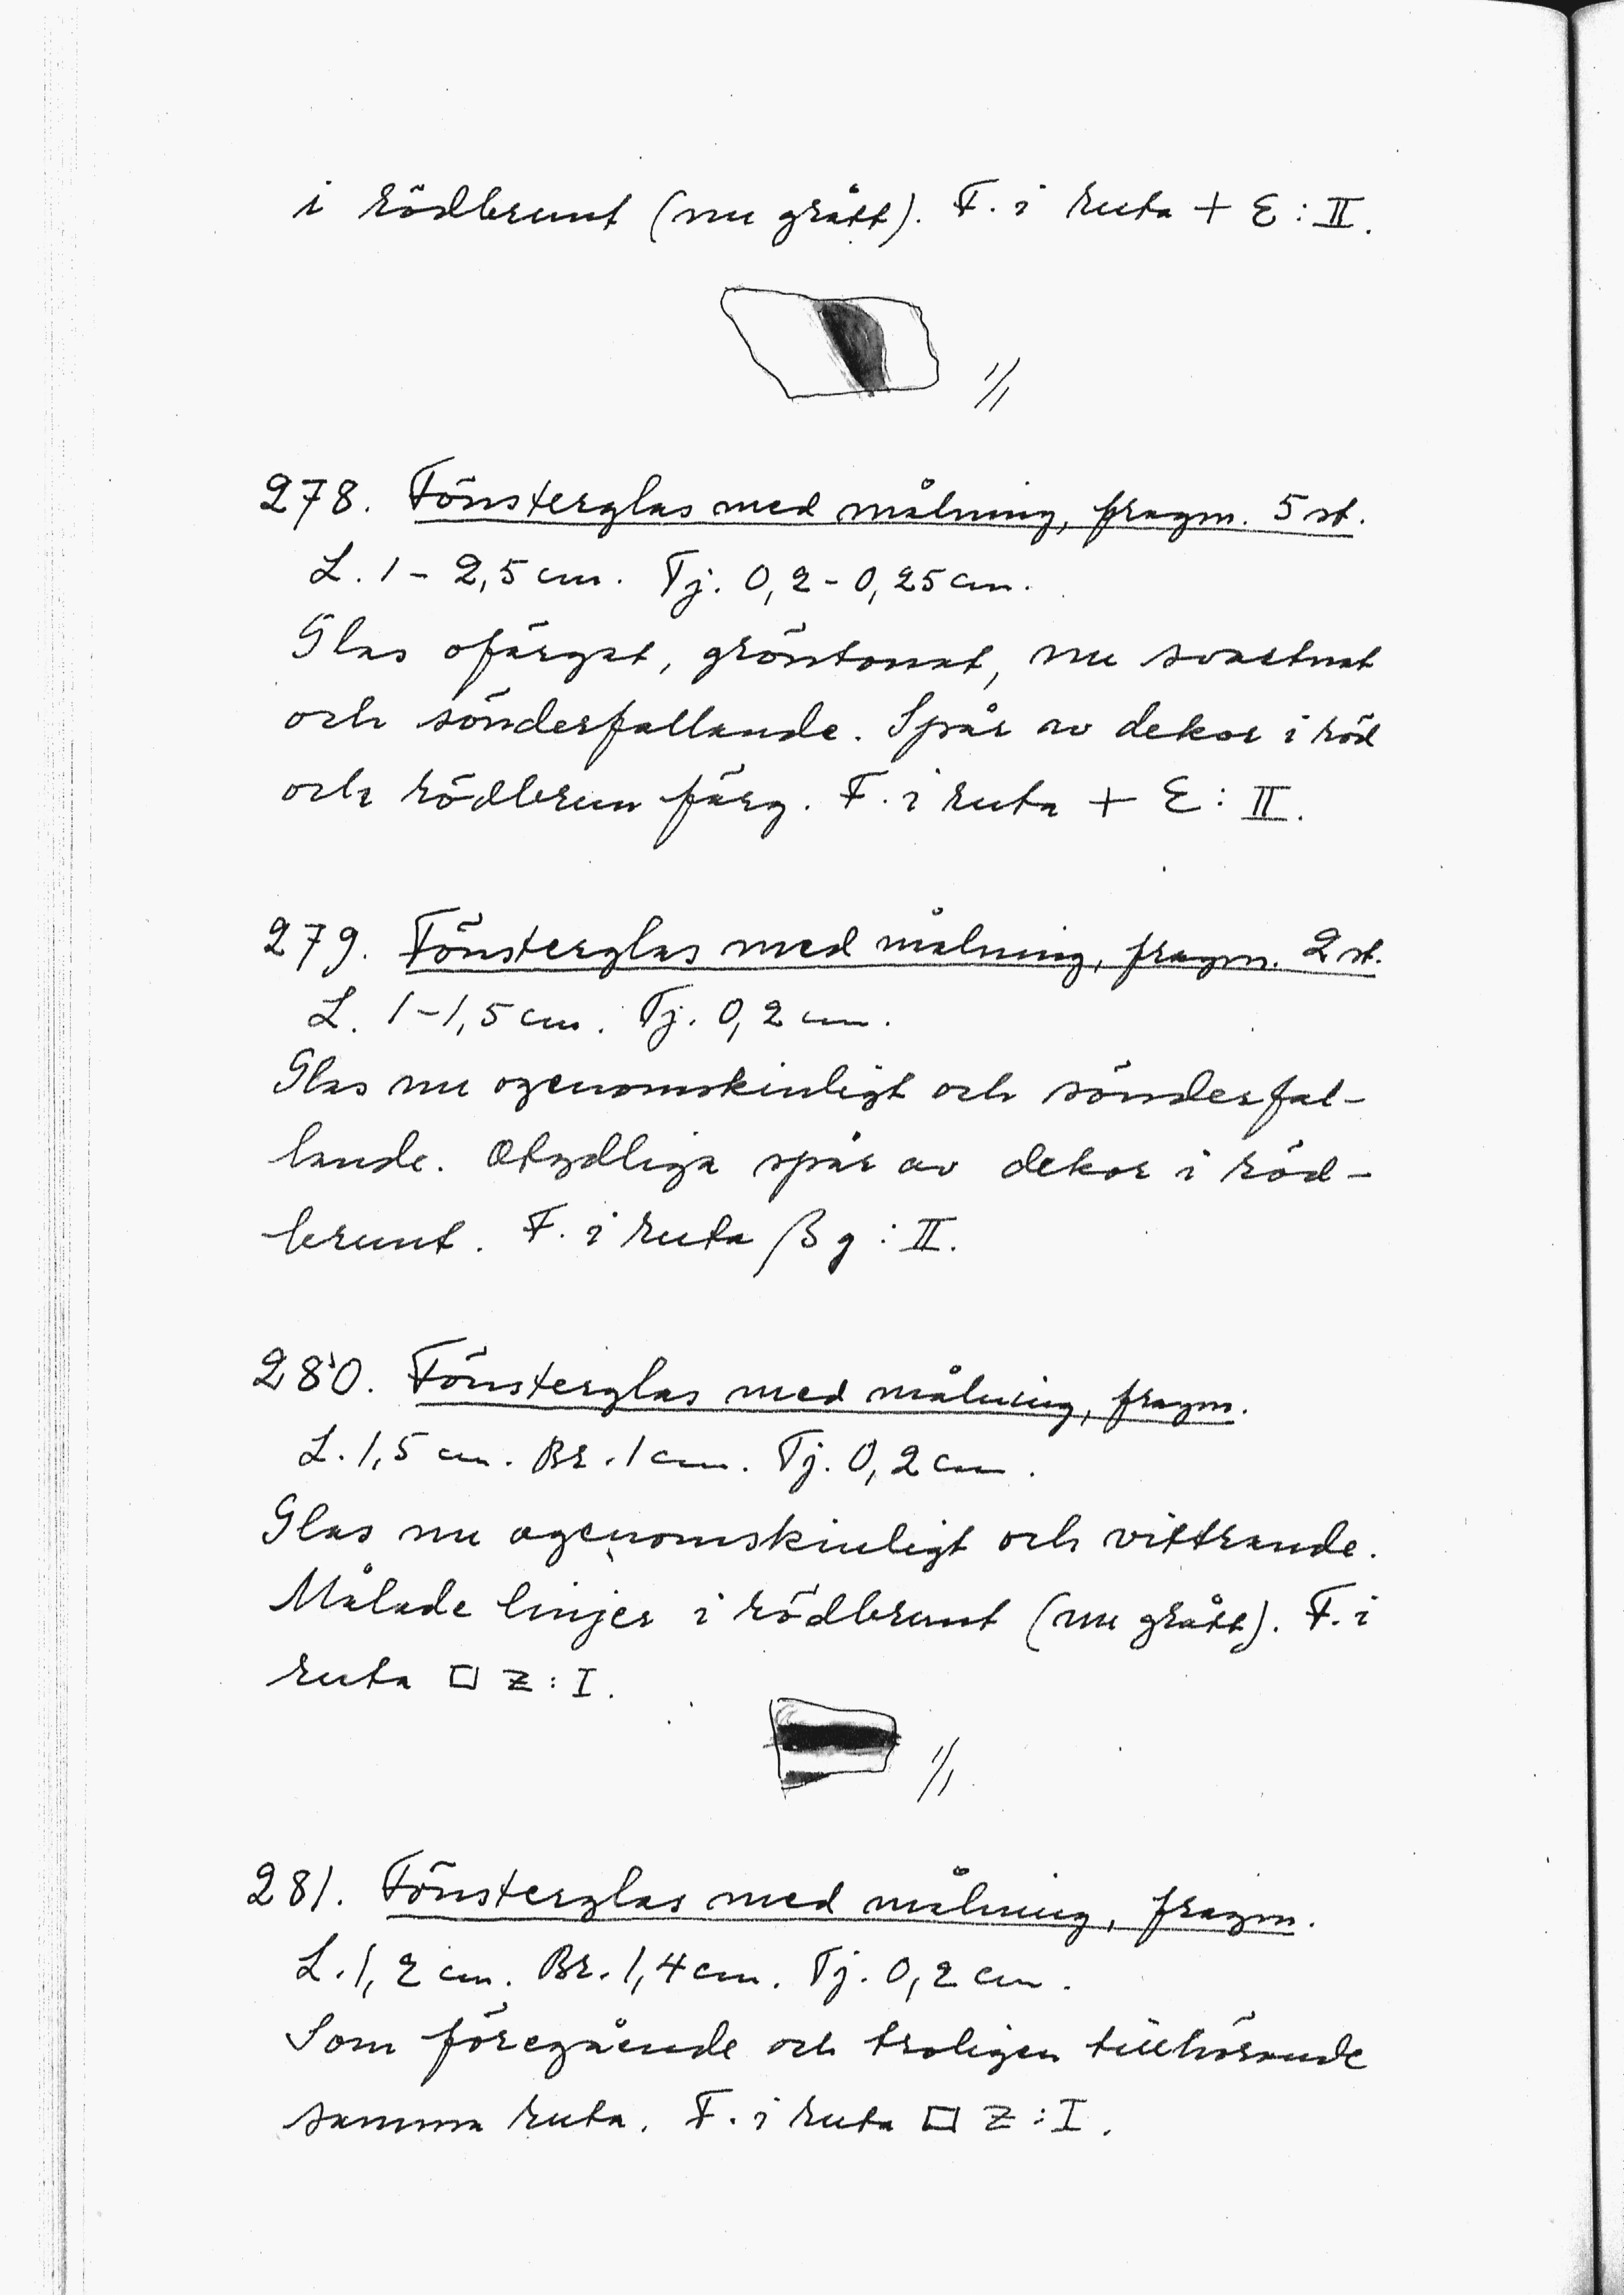 i rödbrunt (nu grått). F. i ruta + E : II.
1/1
278. Fönsterglas med målning, fragm. 5 st.
L. 1 - 2,5 cm. Tj. 0,2 - 0,25 cm.
Glas ofärgat, gröntonat, nu svartnat
och sönderfallande. Spår av dekor i röd
och rödbrun färg. F. i ruta + E : II.
279. Fönsterglas med målning, fragm. 2 st.
L. 1 - 1,5 cm. Tj. 0,2 cm.
Glas nu ogenomskinligt och sönderfal-
lande. Otydliga spår av dekor i röd-
brunt. F. i ruta β g : II.
280. Fönsterglas med målning, fragm.
L. 1,5 cm. Br. 1 cm. Tj. 0,2 cm.
Glas nu ogenomskinligt och vittrande.
Målade linjer i rödbrunt (nu grått). F. i
ruta □ Z : I.
1/1
281. Fönsterglas med målning, fragm.
L. 1,2 cm. Br. 1,4 cm. Tj. 0,2 cm.
Som föregående och troligen tillhörande
samma ruta. F. i ruta □ Z : I.